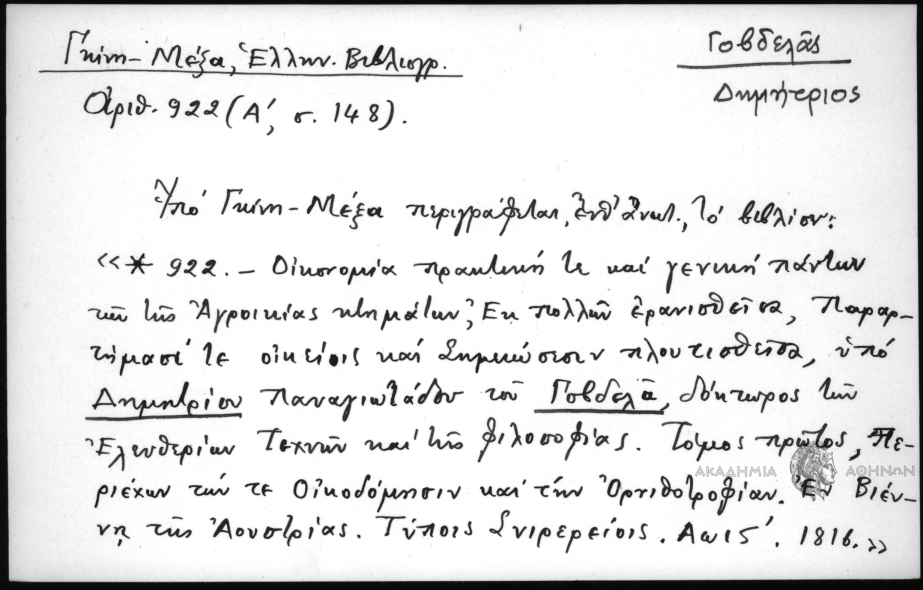 Γκίνη - Μέξα, Ἑλλην. Βιβλιογρ.
Ἀριθ. 922 (Α΄, σ. 148).
Γοβδελᾶς
Δημήτριος
Ὑπό Γκίνη - Μέξα περιγράφεται, ἔνθ' ἀνωτ., τό βιβλίον:
«* 922. - Οἰκονομία πρακτική τε καί γενική πάντων
τῶν τῆς Ἀγροικίας κτημάτων, Ἐκ πολλῶν ἐρανισθεῖσα, Παραρ-
τήμασί τε οἰκείοις καί Σημειώσεσιν πλουτισθεῖσα, ὑπό
Δημητρίου Παναγιωτάδου τοῦ Γοβδελᾶ, δόκτωρος τῶν
Ἐλευθερίων Τεχνῶν καί τῆς φιλοσοφίας. Τόμος πρῶτος, Πε-
ριέχων τήν τε Οἰκοδόμησιν καί τήν Ὀρνιθοτροφίαν. Ἐν Βιέν-
νῃ τῆς Ἀουστρίας. Τύποις Σνιρερείοις. Αωιϛ΄. 1816.»
ΑΚΑΔΗΜΙΑ ΑΘΗΝΩΝ